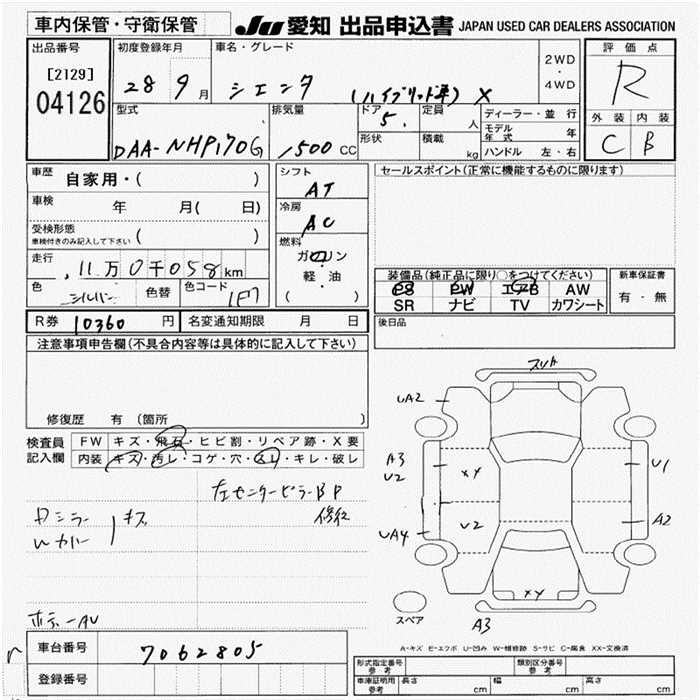 車内保管・守衛保管 JU 愛知 出品申込書 JAPAN USED CAR DEALERS ASSOCIATION
出品番号 初度登録年月 車名・グレード 評価点
[2129] 2WD
04126 28 9月 シエンタ (ハイブリッド車) X ・ R
4WD
型式 排気量 ドア 定員 ディーラー・並行 外装 内装
5 人 モデル年式 年 C B
DAA-NHP170G 1500CC 形状 積載 kg ハンドル 左・右
車歴 自家用・( ) シフト AT セールスポイント(正常に機能するものに限ります)
車検 年 月( 日) 冷房 AC
受検形態
車検付きのみ記入して下さい ( ) 燃料
走行 11万0千058km ガソリン
軽・油
( )
装備品(純正品に限り○をつけてください) 新車保証書
PS PW エアB AW 有・無
SR ナビ TV カワシート
色 シルバー 色替 色コード 1F7
R券 10360円 名変通知期限 月 日 後日品
注意事項申告欄(不具合内容等は具体的に記入して下さい)
修復歴 有 (箇所 )
検査員 FW キズ・飛石・ヒビ割・リペア跡・X要
記入欄 内装 キズ・汚レ・コゲ・穴・スレ・キレ・破レ
左センターピラーBP
修復
キズ
ボデーAU
スリカ
UA2
A3
U2
XY
U1
UA4
U2
A2
XY
A3
スペア
A-キズ E-エクボ U-凹み W-補修跡 S-サビ C-腐食 XX-交換済
車台番号 7062805
登録番号
形式指定番号 参考 類別区分番号 参考
車庫証明用 参考 長さ cm 幅 cm 高さ cm